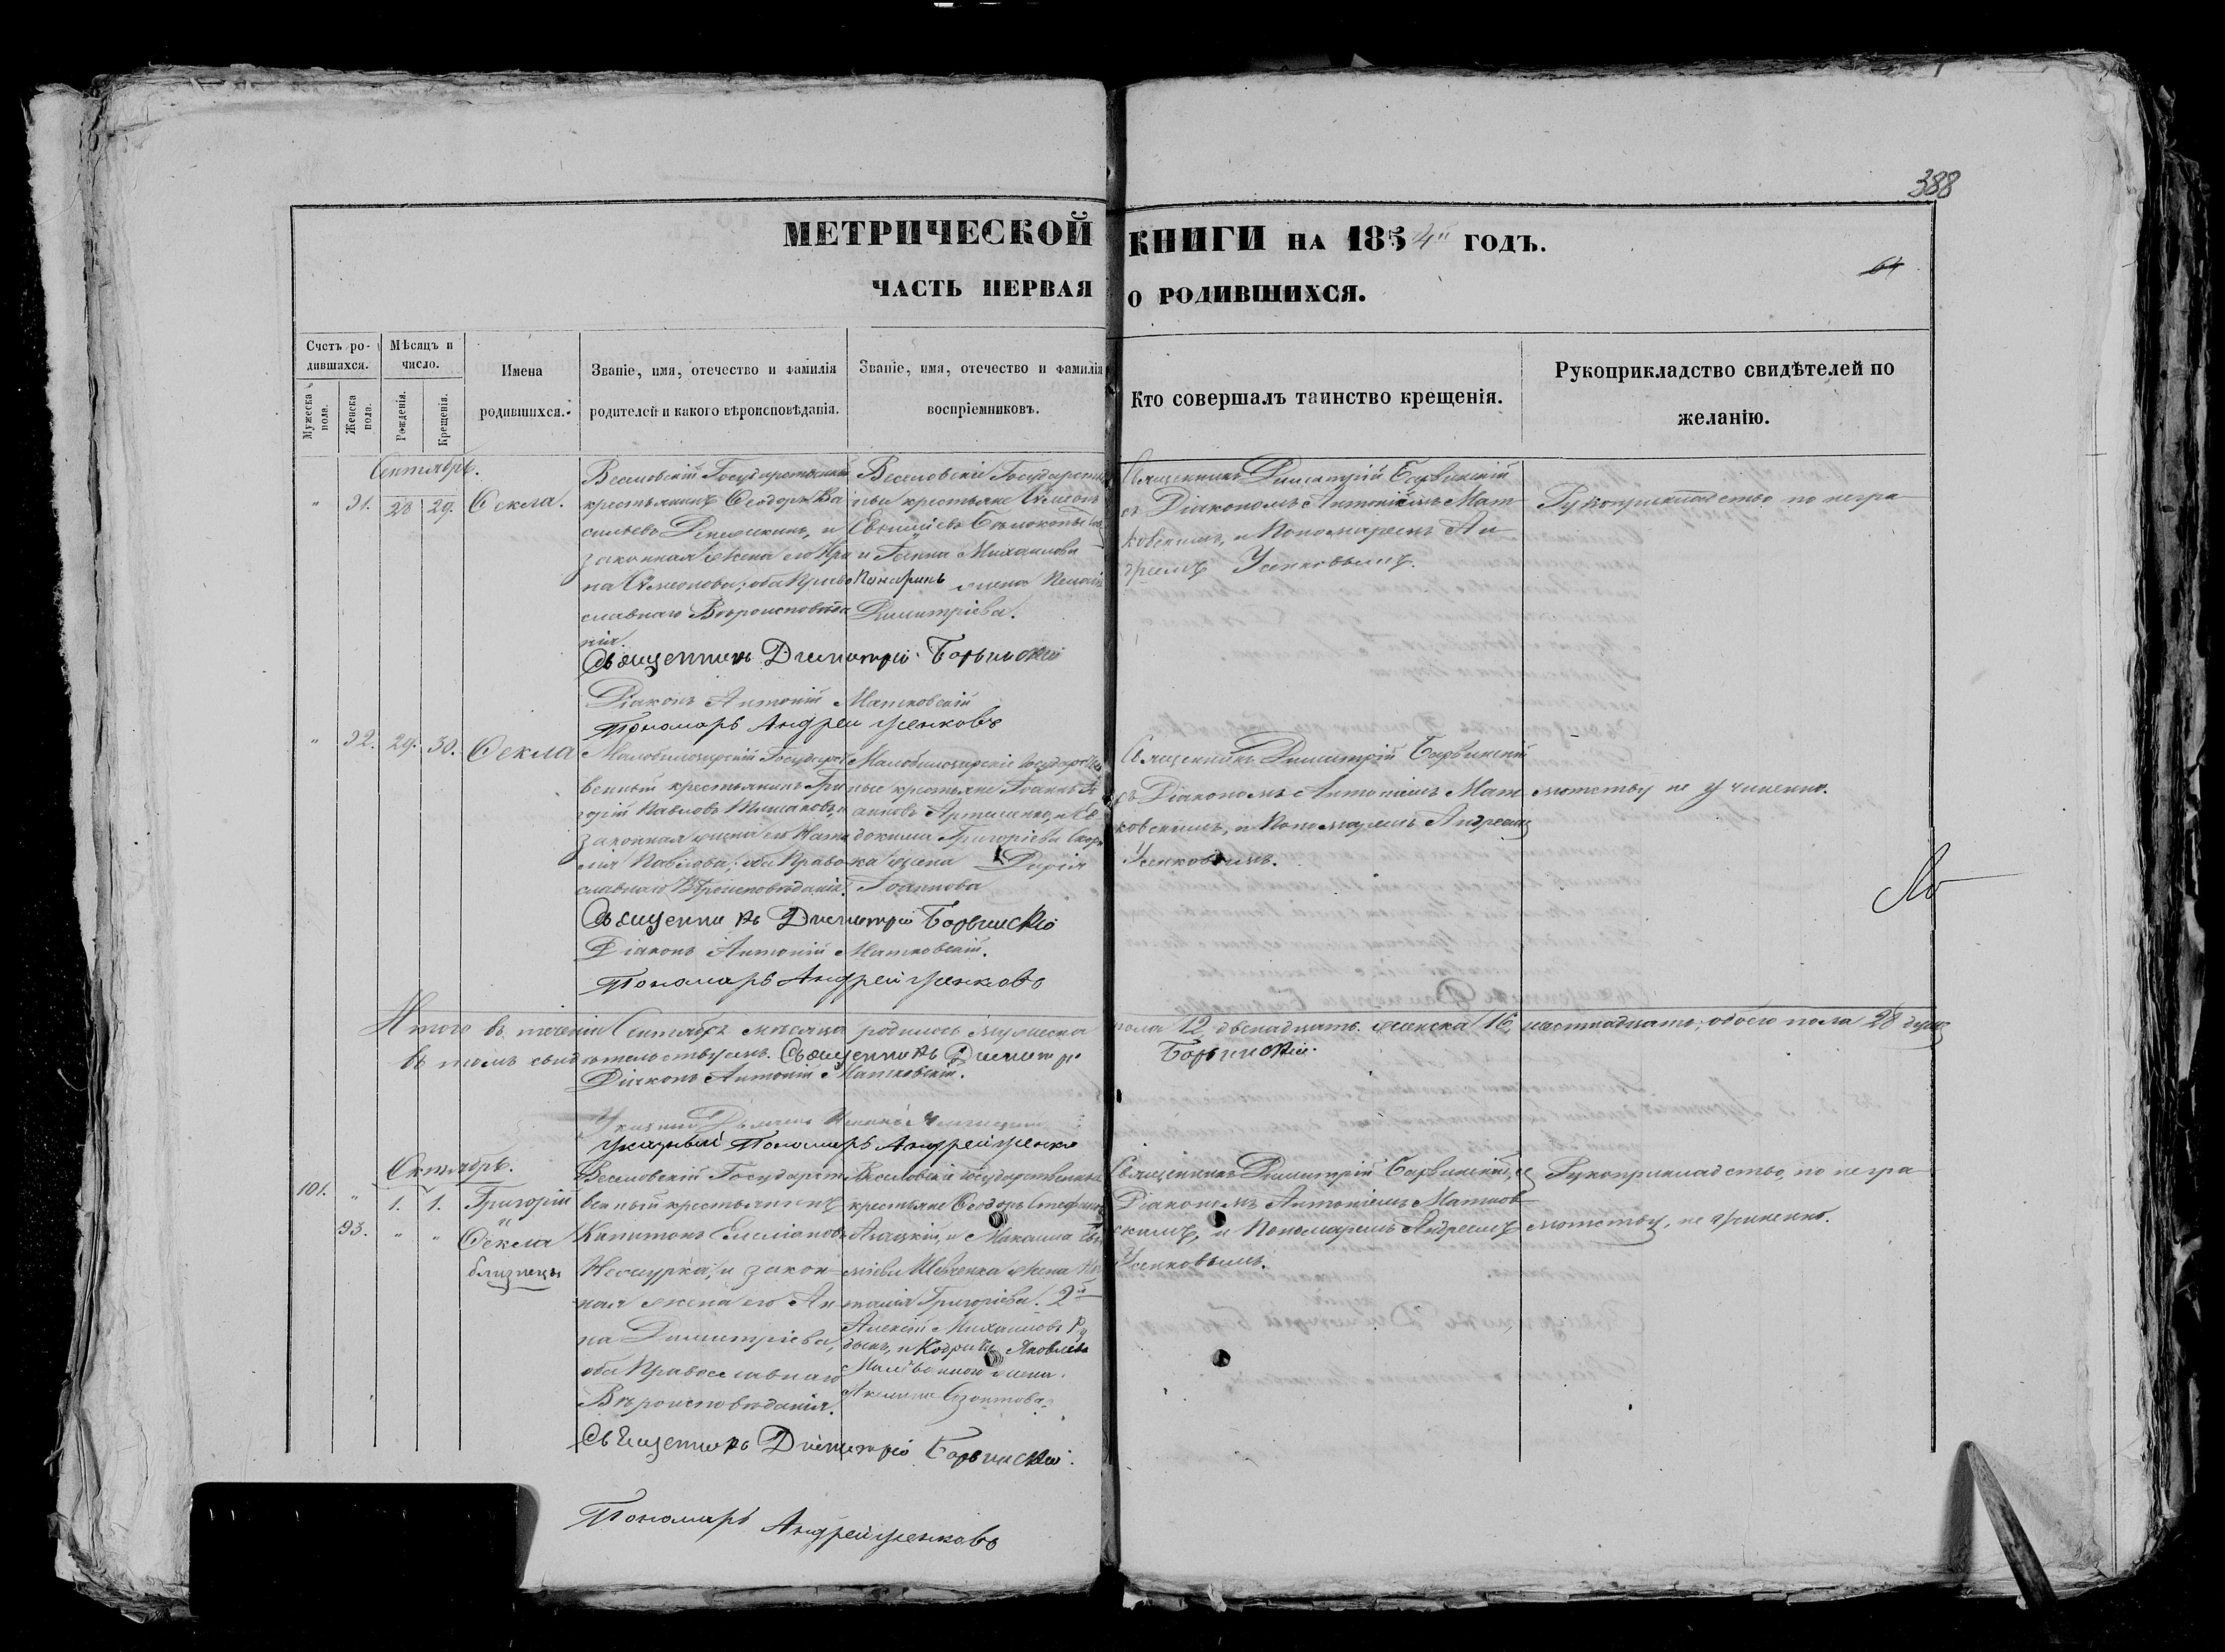 388
МЕТРИЧЕСКОЙ КНИГИ НА 1854й ГОДЪ.
64
ЧАСТЬ ПЕРВАЯ О РОДИВШИХСЯ.
Счетъ родившихся.
Мужеска пола.
Женска пола.
Мѣсяцъ и число.
Рожденія.
Крещенія.
Имена родившихся.
Званіе, имя, отечество и фамилія родителей и какого вѣроисповѣданія.
Званіе, имя, отечество и фамилія воспріемниковъ.
Кто совершалъ таинство крещенія.
Рукоприкладство свидѣтелей по желанію.
Сентябрь.
" 91. 28 29. Ѳекла.
Веселовскій Государственный
крестьянинъ Ѳеодоръ Ва
сильевъ, и
законная жена его Ири
на Симеонова; оба Право
славнаго Вѣроисповѣда
нія.
Веселовскіе Государствен
ные крестьяне Симеонъ
и Іоанна Михаилова
жена
Димитріева.
Священникъ Димитрій Барвинскій
съ Діакономъ Антоніемъ Мат
ковскимъ, и Пономаремъ Ан
дреемъ Усенковымъ.
Рукоприкладство по негра
Священникъ Димитрій Барвинскій
Діаконъ Антоній Матковскій
Пономарь Андрей Усенковъ
" 92. 29. 30. Ѳекла
Малобилозирскій Государст
венный крестьянинъ Гри
горій Павловъ, и
законная жена его Ната
лія Павлова; оба Право
славнаго Вѣроисповѣданія.
Малобилозирскіе Государствен
ные крестьяне Іоаннъ Іо
анновъ Артеменко, и Ев
докима Григоріева
ка жена Дарія
Іоаннова
Священникъ Димитрій Барвинскій
съ Діакономъ Антоніемъ Мат
ковскимъ, и Пономаремъ Андреемъ
Усенковымъ.
мотству не учинено.
Священникъ Димитрій Барвинскій
Діаконъ Антоній Матковскій.
Пономарь Андрей Усенковъ
Итого въ теченіи Сентября мѣсяца родилось мужеска пола 12 двенадцать. женска 16, шестнадцать; обоего пола 28 душъ
въ томъ свидѣтельствуемъ. Священникъ Димитрій Барвинскій.
Діаконъ Антоній Матковскій.
Указный Пономарь Андрей Усенко
Октябрь.
101. " 1. 1. Григорій
и
93. " " Ѳекла
близнецы
Веселовскій Государст
венный крестьянинъ
Капитонъ Емеліановъ
и закон
ная жена его Ан
на Димитріева,
оба Православнаго
Вѣроисповѣданія.
Веселовскіе Государственные
крестьяне Ѳеодоръ Стефановъ
и Максима Ев
миева Шевченка жена На
талія Григоріева. 2й
Алексій Михаиловъ Ру
Яковлева
жена.
Акилина
Священникъ Димитрій Барвинскій, съ
Діакономъ Антоніемъ Матков
скимъ, и Пономаремъ Андреемъ
Усенковымъ.
Рукоприкладство, по негра
мотству, не учинено.
Священникъ Димитрій Барвинскій.
Пономарь Андрей Усенковъ